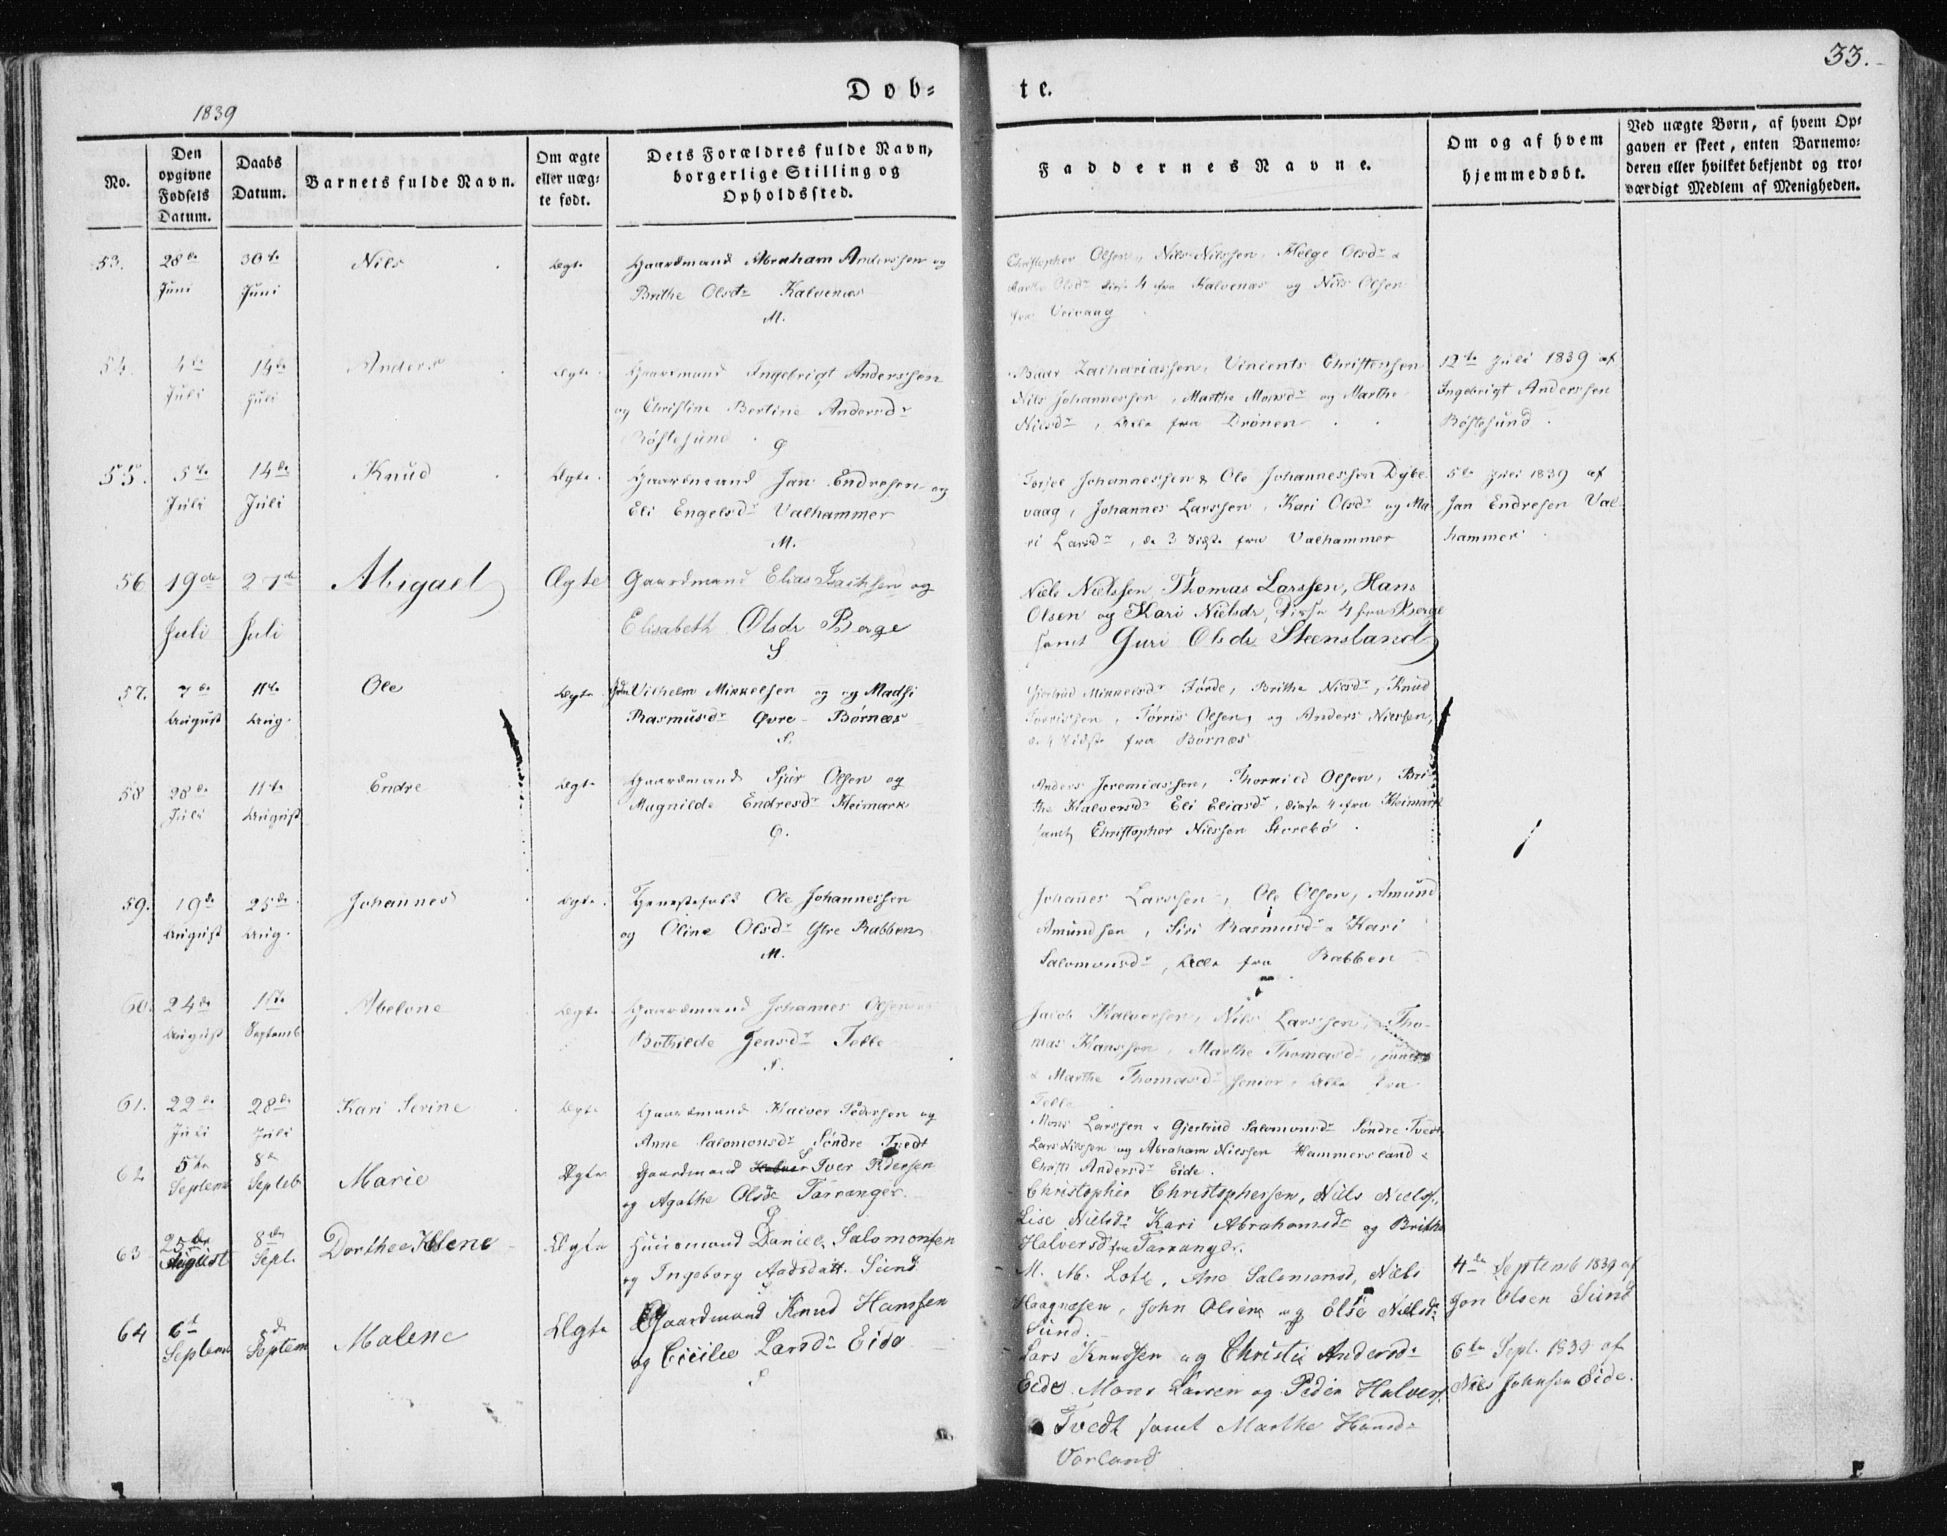 33.
Døb- te.
1839
No.
Den opgivne Fødsels Datum.
Daabs Datum.
Barnets fulde Navn.
Om ægte eller uæg- te født.
Dets Forældres fulde Navn, borgerlige Stilling og Opholdssted.
Faddernes Navne.
Om og af hvem hjemmedøbt.
Ved uægte Børn, af hvem Op- gaven er skeet, enten Barnemo- deren eller hvilket bekjendt og tro- værdigt Medlem af Menigheden.
53. 28de Juni 30te Juni Nils Ægte
Gaardmand Abraham Anderssen og
Brithe Olsdr Kalvenæs
M.
Christopher Olsen, Nils Nilssen, Helge Olsdr &
Marthe Olsdr disse 4 fra Kalvenæs og Nils Olsen
fra Veivaag
54. 4de Juli 14de Juli Anders Ægte
Gaardmand Ingebrigt Anderssen
og Christine Bertine Andersdr
Bøstesund
Baar Zachariassen, Vincents Christenssen
Nils Johannessen, Marthe Monsdr og Marthe
Nilsdr, alle fra Drønen
12te Juli 1839 af
Ingebrigt Anderssen
Bøstesund.
55. 5te Juli 14de Juli Knud Ægte
Gaardmand Jan Endresen og
Eli Engelsdr Valhammer
M.
Johannessen & Ole Johannessen Dybe
vaag, Johannes Larssen, Kari Olsdr og Ma
ri Larsdr, de 3 sidste fra Valhammer
5te Juli 1839 af
Jan Endresen Val
hammer.
56 19de Juli 27de Juli Abigael Ægte
Gaardmand Elias Isaksen og
Elisabeth Olsdr Berge
S
Niels Nielssen, Thomas Larssen, Hans
Olsen og Kari Nielsdr, disse 4 fra Berge
samt Guri Olsdr Steensland
57. 7de August 11te Aug. Ole Ægte
Vilhelm Mikkelsen og og Madsi
Rasmusdr Øvre Børnæs
S.
Gjertrud Mikkelsdr Førde, Brithe Nilsdr, Knud
Torrissen, Tørris Olsen, og Anders Nilssen,
de 4 sidste fra Børnæs
58 28de Juli 11te August Endre Ægte
Gaardmand Sjur Olsen og
Magnilde Endresdr Heimark
Anders Jeremiassen, Thorkild Olsen, Bri
the Halversdr Eli Eliasdr, disse 4 fra Heimark
samt Christopher Nilssen Storebø.
59. 19de August 25de Aug. Johannes Ægte
Tjenestefolk Ole Johannessen
og Oline Olsdr Ytre Rabben
M.
Johanes Larssen, Ole Olsen, Amund
Amundsen, Siri Rasmusdr & Kari
Salomonsdr, alle fra Rabben
60. 24de August 1ste Septemb Abelone Ægte
Gaardmand Johannes Olsen
Bothilde Jensdr Telle
S.
Jacob Halversen, Nils Larssen, Tho-
mas Hanssen, Marthe Thomasdr, junior
& Marthe Thomasdr senior, alle fra
Telle
61. 22de Juli 28de Juli Kari Serine Ægte
Gaardmand Halver Pedersen og
Anne Salomonsdr Søndre Tvedt
S
Mons Larssen & Gjertrud Salomonsdr Søndre Tvedt
Lars Nilssen og Abraham Nilssen Hammersland &
Christi Andersdr Eide.
62 5te Septemb 8de Septeb Marie Ægte
Gaardmand Iver Pedersen
og Agathe Olsdr Tarranger.
Christopher Christophersen, Niels Nielss.,
Lise Nielsdr Kari Abrahamsdr og Brithe
Halversd fra Tarranger.
63 25de August 8de Sept. Dorthe Helene Ægte
Huusmand Daniel Salomonsen
og Ingeborg Aadsdatt. Sund
S
M. M. Lote, Ane Salomonsd, Niels
Haagnæsen, John Olsen og Else Nielsdr
Sund.
4de Septemb 1839 af
Jon Olsen Sund
64 6te Septem 8de Septem Malene Ægte
Gaardmand Knud Hanssen
og Cicilie Larsdr Eide
S
Lars Knudsen og Christi Andersdr
Eide, Mons Larsen og Peder Halvers.
Tvedt samt Marthe Hansdr
Vorland
6te Sept. 1839 af
Niels Johnsen Eide.